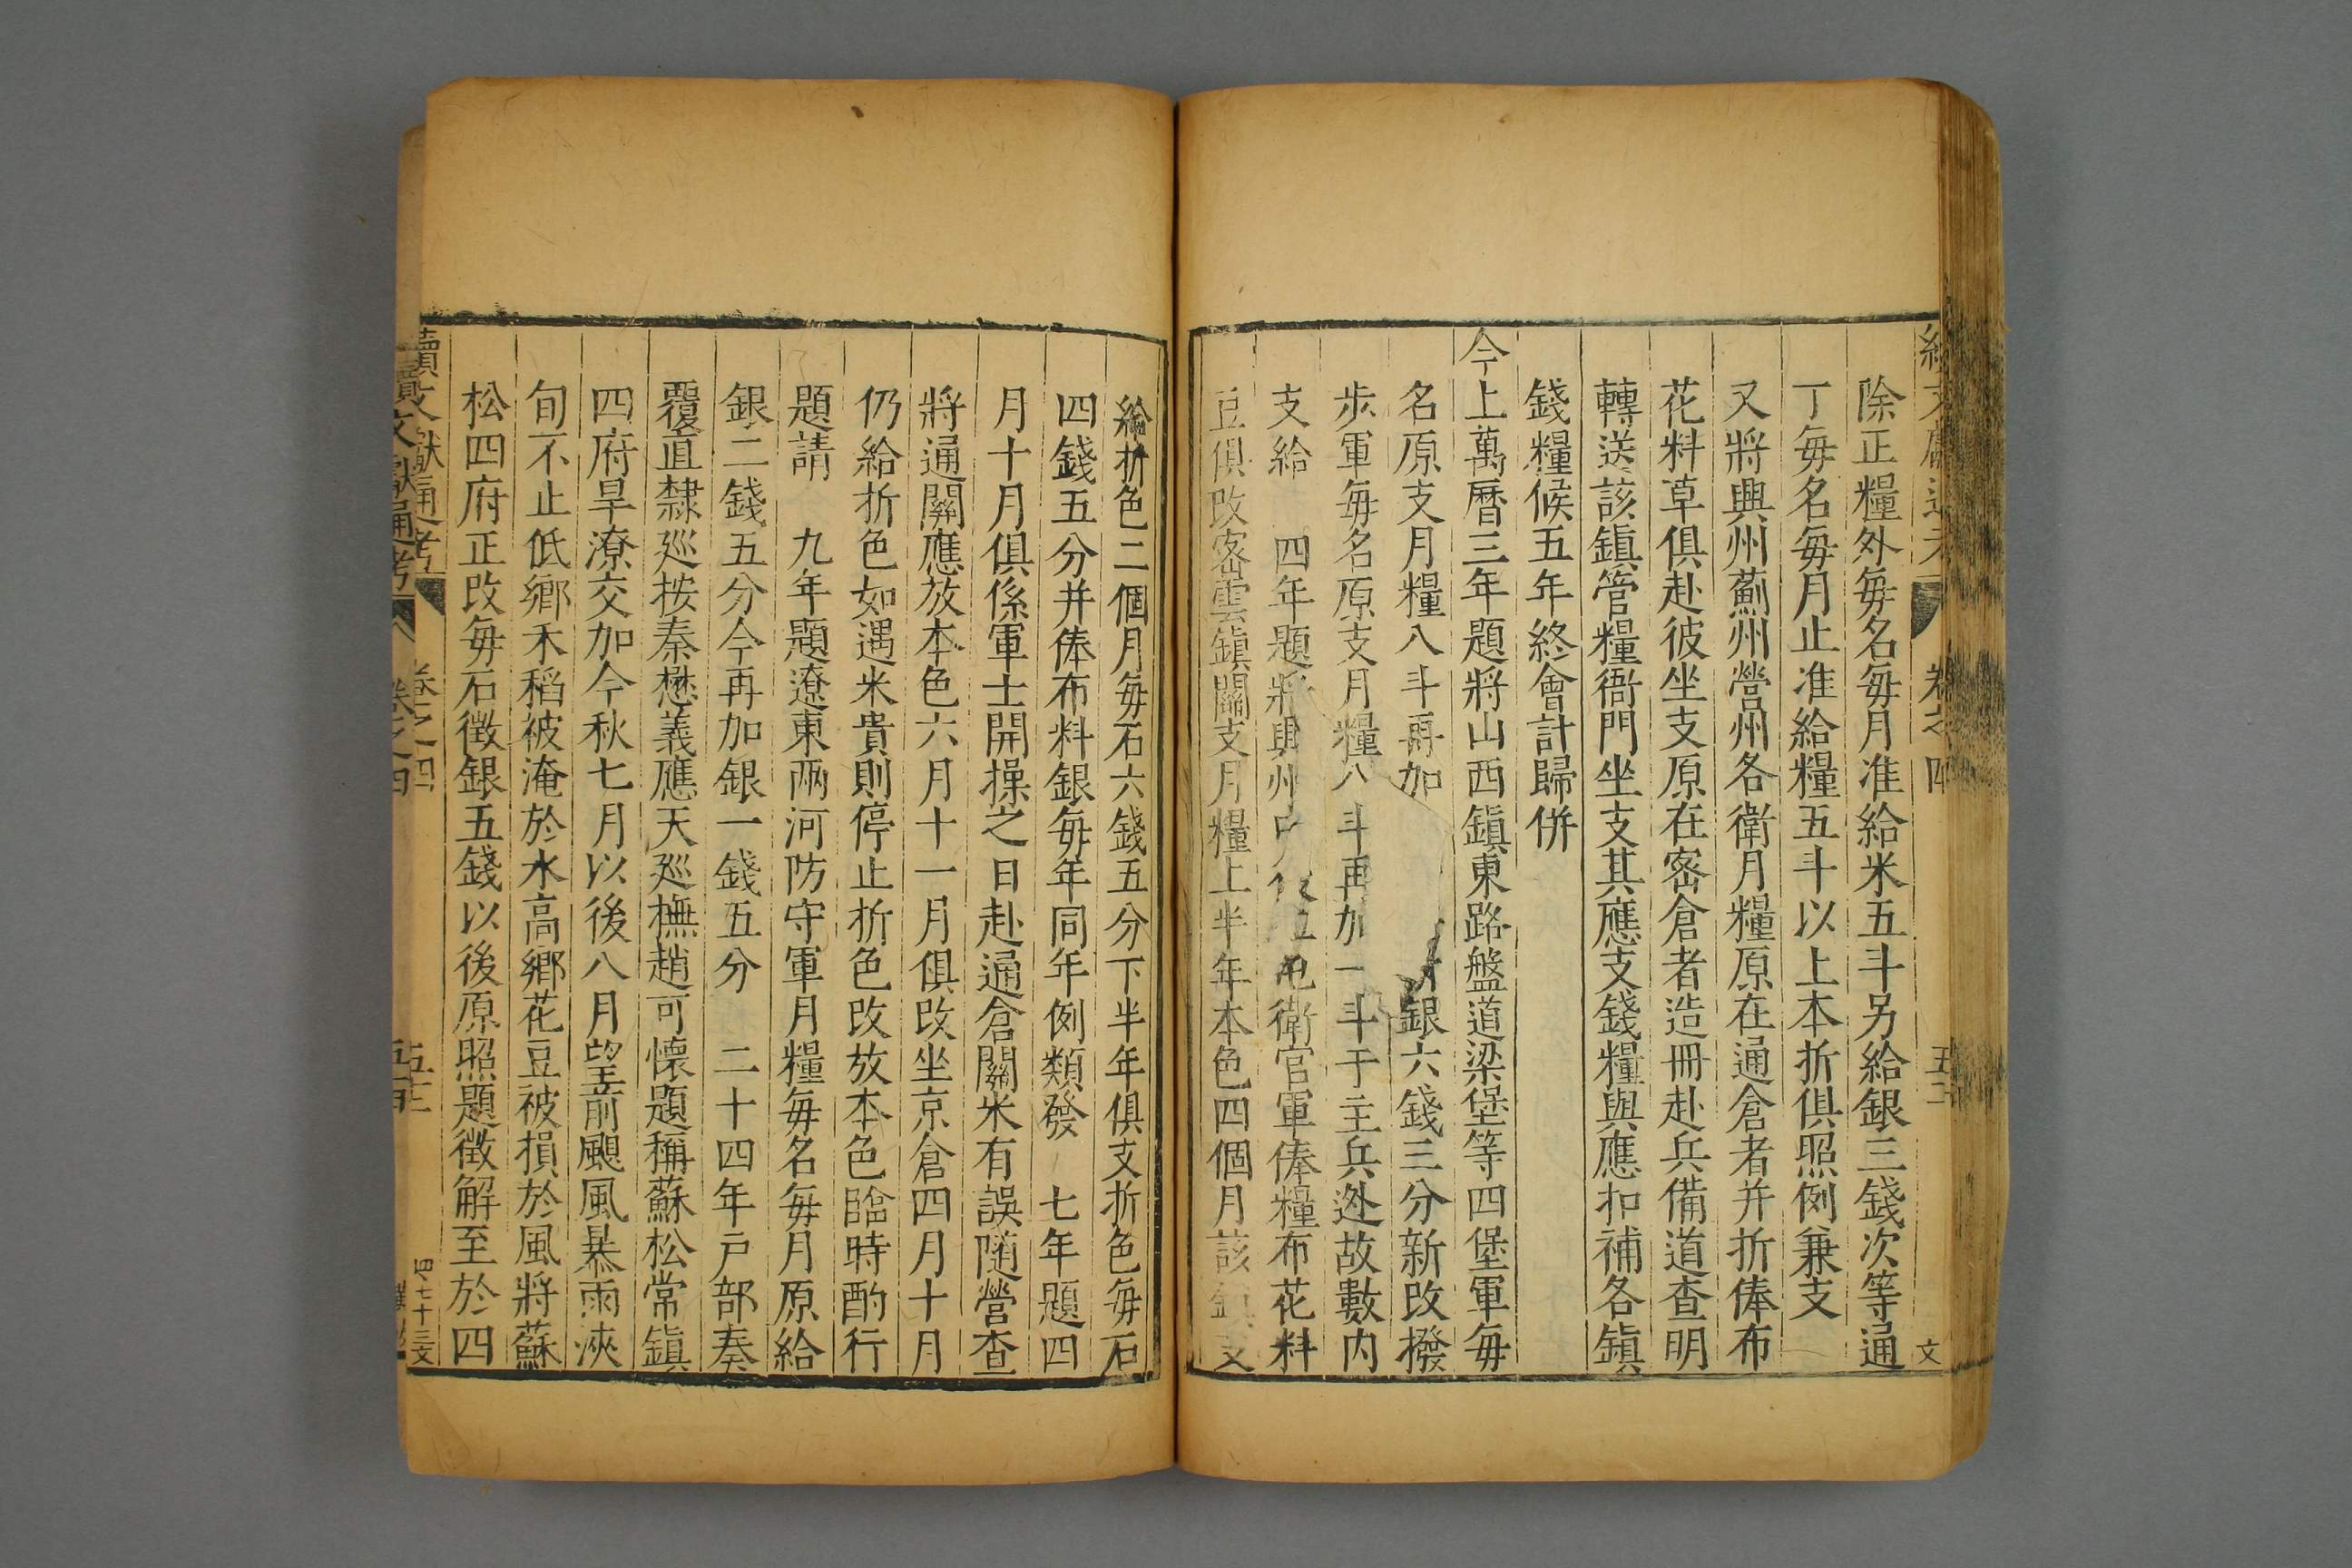 除正糧外每名每月准給米五斗另給銀三錢次等通
丁每名每月止准給糧五斗以上本折俱照例兼支
又將興州薊州營州各衛月糧原在通倉者并折俸布
花料草俱赴彼坐支原在密倉者造冊赴兵備道查明
轉送該鎮管糧衙門坐支其應支錢糧與應扣補各鎮
錢糧候五年終會計歸併
今上萬曆三年題將山西鎮東路盤道梁堡等四堡軍每
名原支月糧八斗再加 銀六錢三分新改撥
步軍每名原支月糧八斗再加一斗于主兵迯故數內
支給 四年題將興州 衛官軍俸糧布花料
豆俱改密雲鎮關支月糧上半年本色四個月該鎮支
給折色二個月每石六錢五分下半年俱支折色每石
四錢五分并俸布料銀每年同年例類發 七年題四
月十月俱係軍士開操之日赴通倉關米有誤隨營查
將通關應放本色六月十一月俱改坐京倉四月十月
仍給折色如遇米貴則停止折色改放本色臨時酌行
題請 九年題遼東兩河防守軍月糧每名每月原給
銀二錢五分今再加銀一錢五分 二十四年戶部奏
覆直隸巡按秦懋義應天巡撫趙可懷題稱蘇松常鎮
四府旱潦交加今秋七月以後八月望前颶風暴雨浹
旬不止低鄉禾稻被淹於水高鄉花豆被損於風將蘇
松四府正改每石徵銀五錢以後原照題徵解至於四
續文獻通考 卷之四